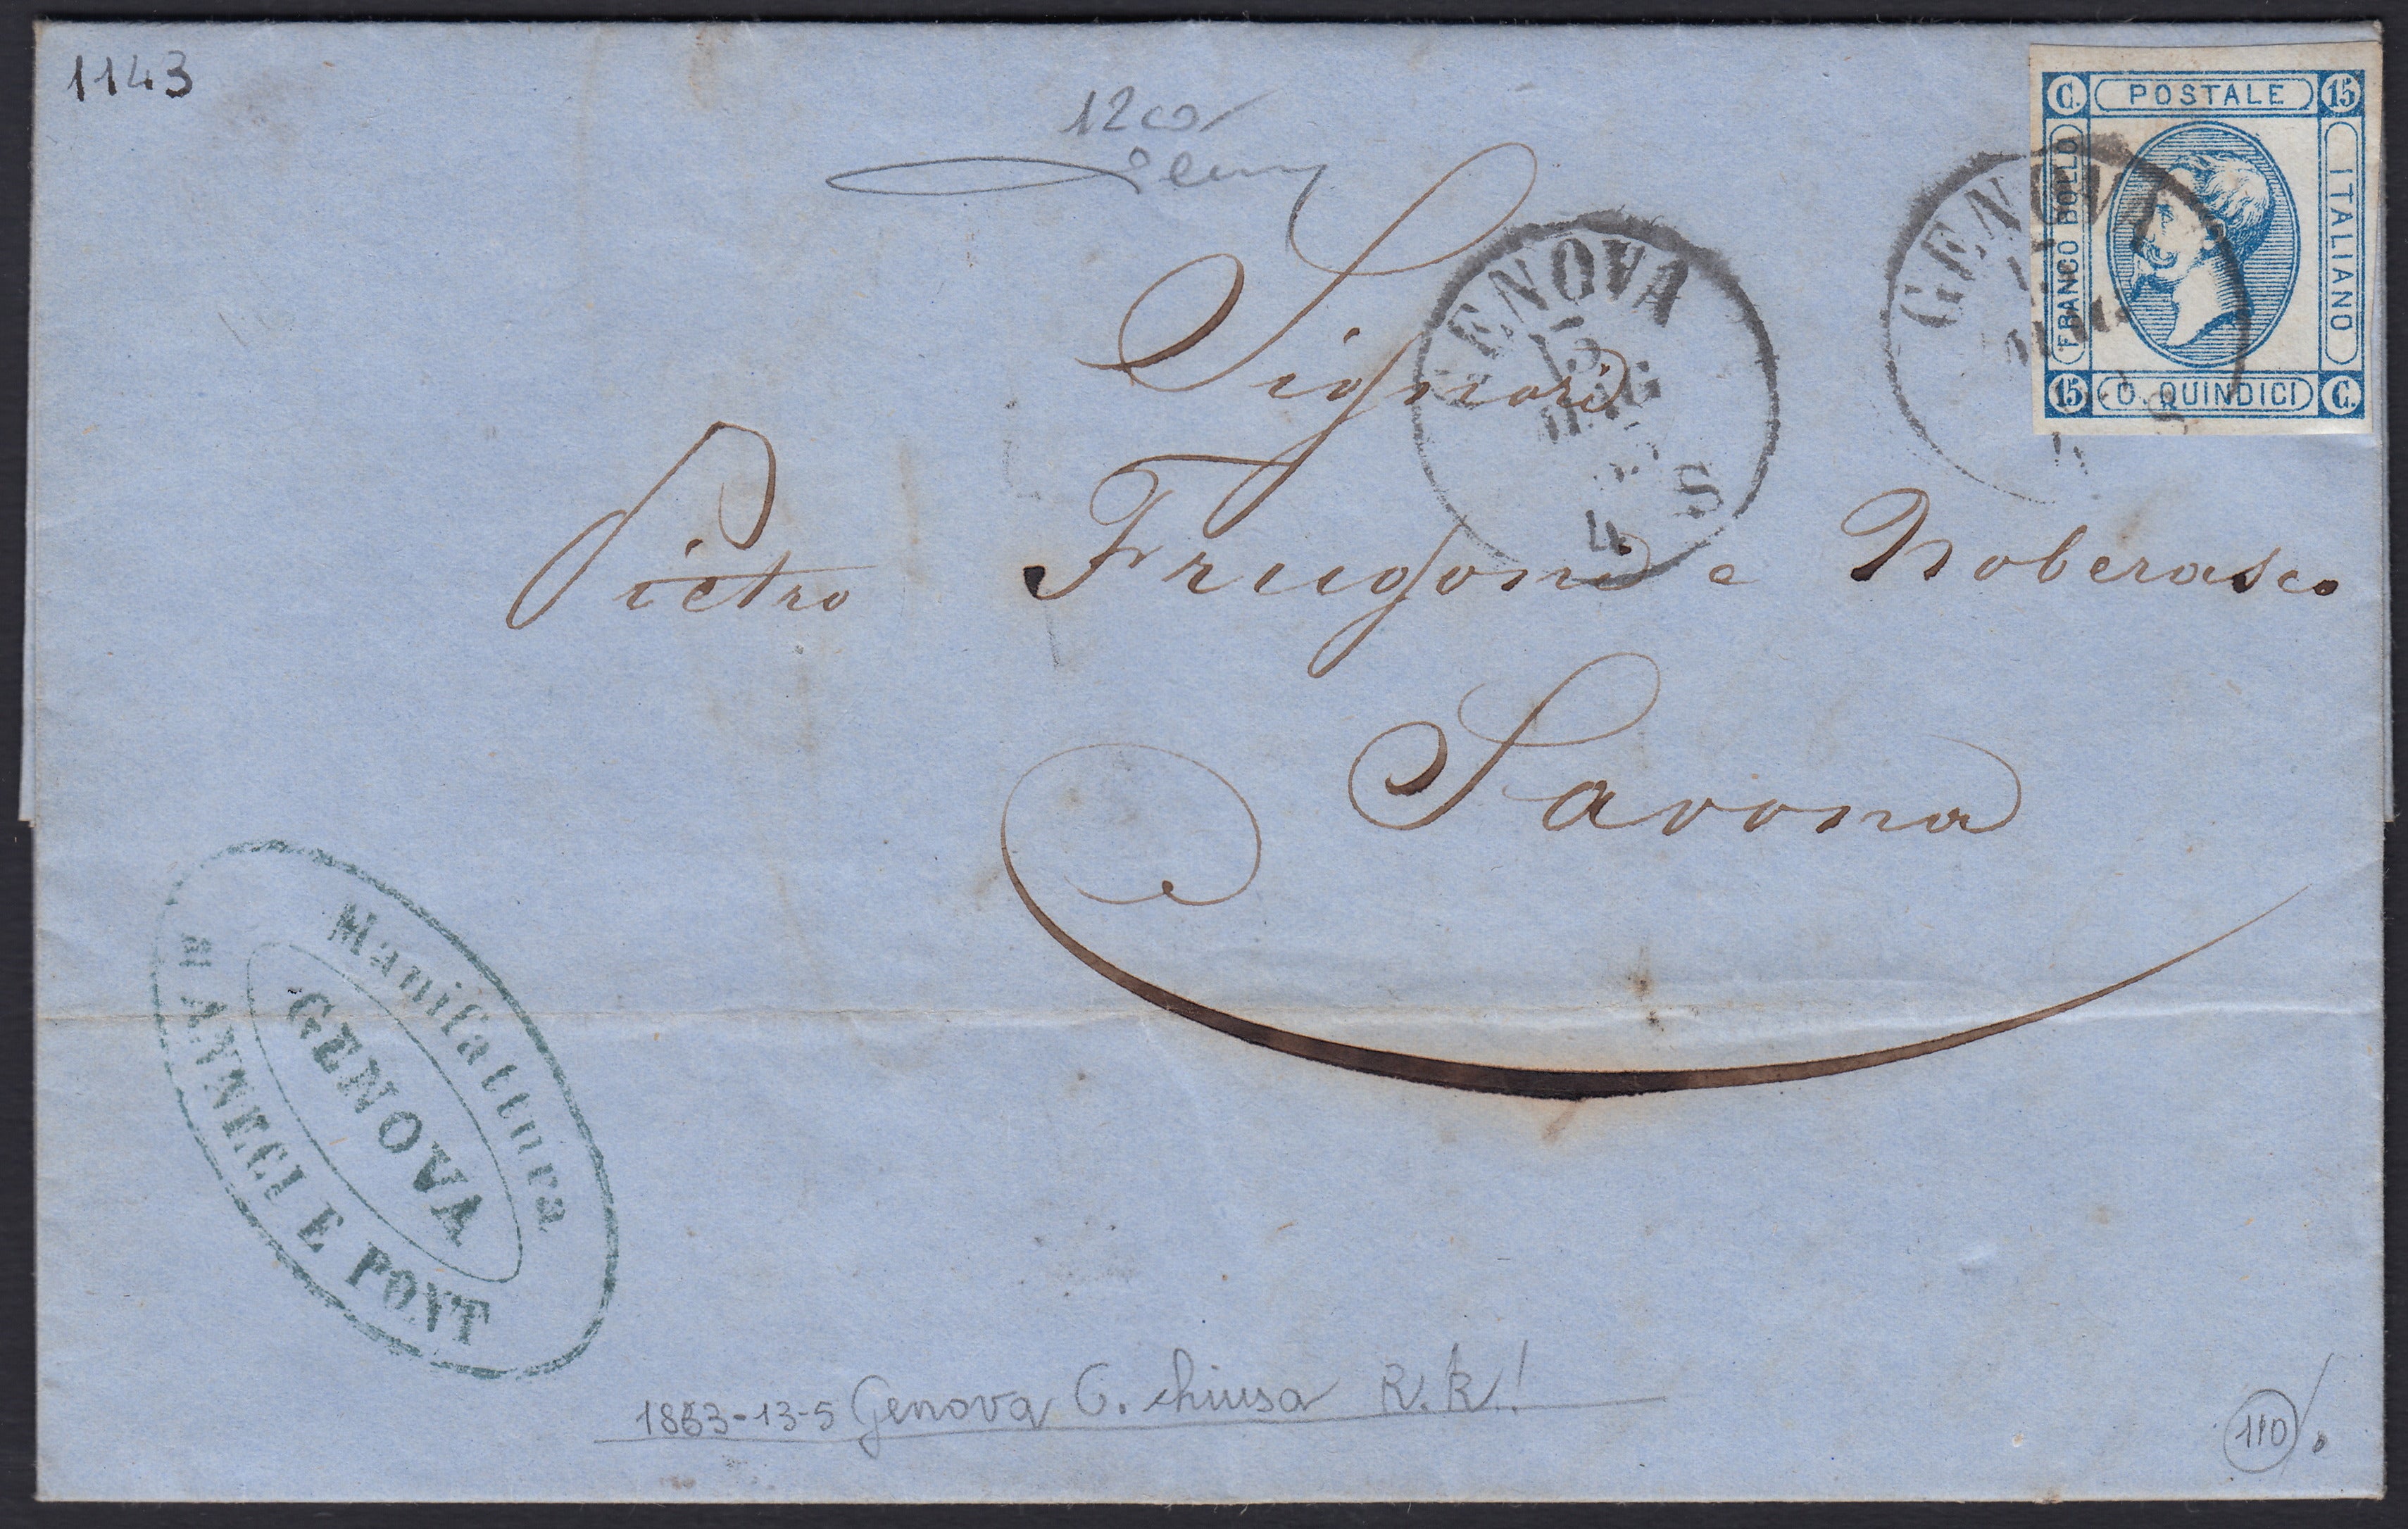 1143
12co
C. POSTALE 15
FRANCO BOLLO
ITALIANO
15 C. QUINDICI C.
GENOVA
MAG
4 S
GENOVA
13
MAG
63
4 S
Signori
Pietro Frugoni e Noberasco
Savona
Manifattura
GENOVA
di ANNECI E PONT
1863-13-5 Genova C. chiusa R.R!
110